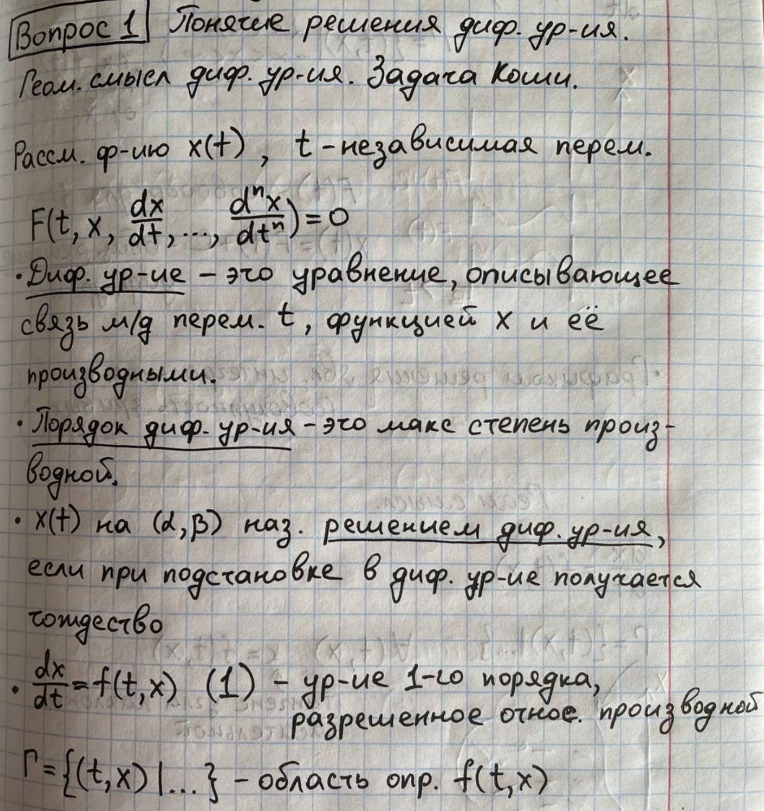 Вопрос 1 Понятие решения диф. ур-ия.
Геом. смысл диф. ур-ия. Задача Коши.
Рассм. ф-ию x(t), t - независимая перем.
F(t, x, dx/dt, ..., dⁿx/dtⁿ) = 0
• Диф. ур-ие - это уравнение, описывающее
связь м/д перем. t, функцией x и её
производными.
• Порядок диф. ур-ия - это макс степень произ-
водной.
• x(t) на (α, β) наз. решением диф. ур-ия,
если при подстановке в диф. ур-ие получается
тождество
• dx/dt = f(t, x) (1) - ур-ие 1-го порядка,
разрешенное относ. производной
Γ = {(t, x) | ... } - область опр. f(t, x)